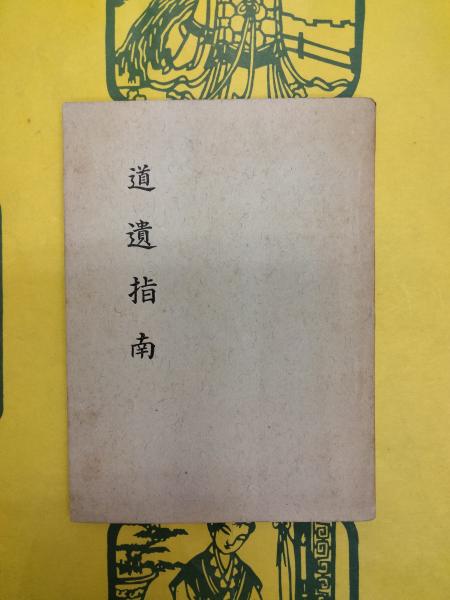 道遺指南